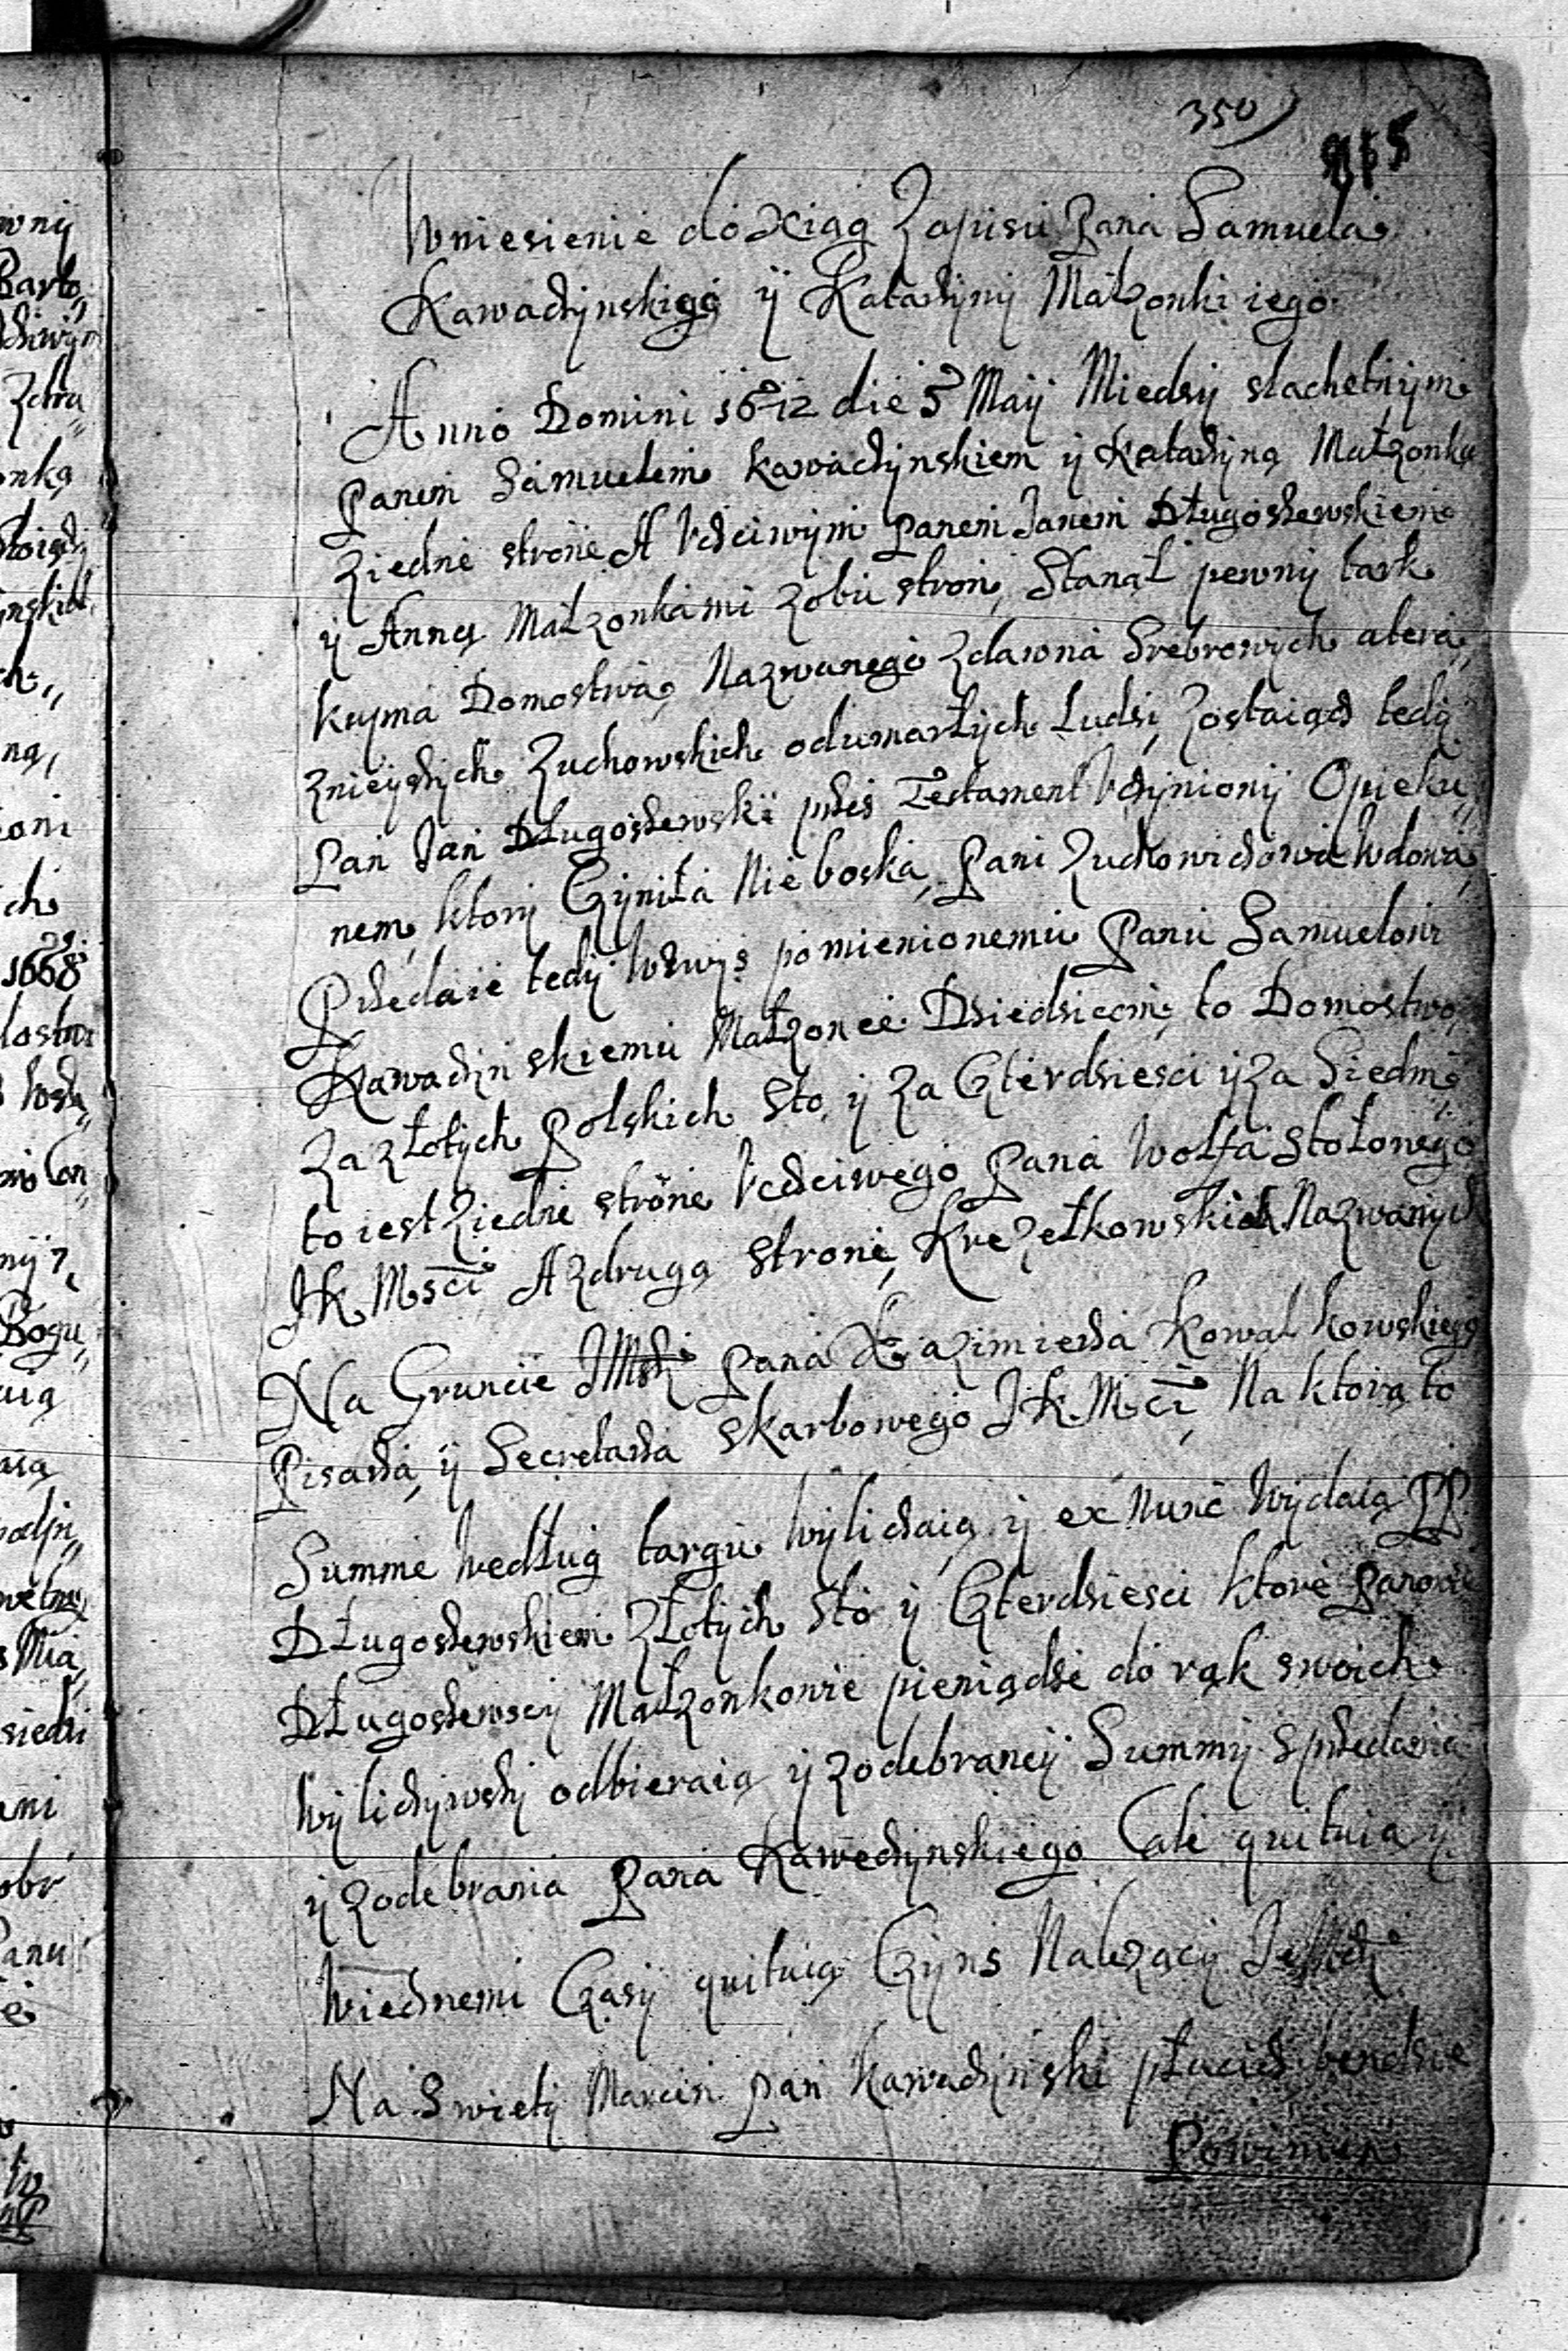 350
Wniesienie do Xiąg Zapisu Pana Samuela
Kawaczynskiego y Katarzyny Małzonki iego
Anno Domini 1672 die 5 Maij Miedzy slachetnym
Panem Samuelem Kawaczynskiem y Katarzyną Małzonką
z iedne strone A Vczciwym Panem Janem Długoszewskiem
y Anną Małzonkami z obu stron, Stanął pewny tark
kupna Domostwa, Nazwanego zdawna Srebrowych a tera,,
znieyszych Zuchowskich odumarłych Ludzi, zostaiącz tedy
Pan Jan Długoszewski przes Testament Vczyniony Opieku,,
nem, ktory Czyniła Nieboska, Pani Zuchowiczowa Wdowa,
Przedaie tedy wzwys pomienionemu Panu Samuelowi
Kawaczynskiemu Małzonce Dziedzicom, to Domostwo,
za złotych Polskich Sto, y za Czterdziesci y za Siedm,
to iest z iedne strone Vczciwego Pana Wolfa Stołonego
JK Mści A z drugą strone, Krezełkowskich Nazwanych
Na Gruncie JMści Pana Kazimierza Kowalkowskiego
Pisarza, y Secretarza skarbowego JK Mci, Na ktorą to
Summe według targu wyliczaią y ex Nunc wydaią PP
Długoszewskiem złotych sto y Czterdziesci ktore Panowie
Długoszewscy Małzonkowie pieniądze do rąk swoich
wyliczywszy odbieraią y z odebraney Summy sprzedania
y z odebrania Pana Kaweczynskiego Cale quituia y
wiecznemi Czasy quituią Czyns Nalezący
Na Swiety Marcin Pan Kawaczynski płacicz bendzie
Powinien